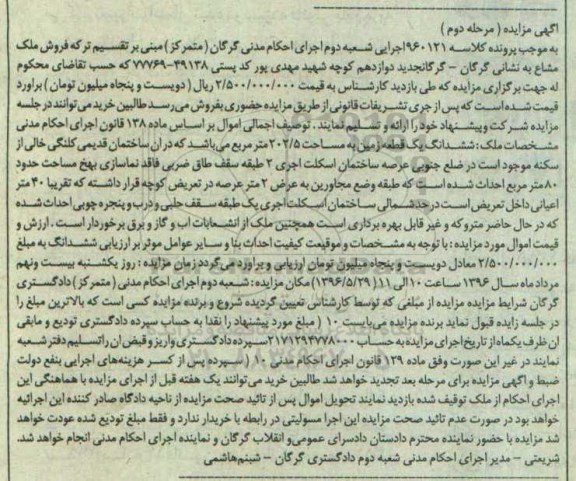 آگهی مزایده ( مرحله دوم )
به موجب پرونده کلاسه ۹۶۰۱۲۱ اجرایی شعبه دوم اجرای احکام مدنی گرگان ( متمرکز ) مبنی بر تقسیم ترکه فروش ملک
مشاع به نشانی گرگان – گرگانجدید دوازدهم کوچه شهید مهدی پور کد پستی ۴۹۱۳۸-۷۷۷۶۹ که حسب تقاضای محکوم
له جهت برگزاری مزایده که طی بازدید کارشناس به قیمت ۲/۵۰۰/۰۰۰/۰۰۰ ریال ( دویست و پنجاه میلیون تومان ) براورد
قیمت شده است که پس از جری تشریفات قانونی از طریق مزایده حضوری بفروش می رسد طالبین خرید می توانند در جلسه
مزایده شرکت و پیشنهاد خود را ارائه و تسلیم نمایند . توصیف اجمالی اموال بر اساس ماده ۱۳۸ قانون اجرای احکام مدنی
مشخصات ملک : ششدانگ یک قطعه زمین به مساحت ۲۰۲/۵ متر مربع می باشد که در ان ساختمان قدیمی کلنگی خالی از
سکنه موجود است در ضلع جنوبی عرصه ساختمان اسکلت اجری ۲ طبقه سقف طاق ضربی فاقد نماسازی بهخ مساحت حدود
۸۰ متر مربع احداث شده است که طبقه وضع مجاورین به عرض ۲ متر عرصه در تعریض کوچه قرار داشته که تقریبا ۴۰ متر
اعیانی داخل تعریض است در حد شمالی ساختمان اسکلت اجری یک طبقه سقف حلبی و درب و پنجره چوبی احداث شده
که در حال حاضر متروکه و غیر قابل بهره برداری است همچنین ملک از انشعابات اب و گاز و برق برخوردار است . ارزش و
قیمت اموال مورد مزایده : با توجه به مشخصات و موقعیت کیفیت احداث بنا و سایر عوامل موثر بر ارزیابی ششدانگ به مبلغ
۲/۵۰۰/۰۰۰/۰۰۰ معادل دویست و پنجاه میلیون تومان ارزیابی و براورد می گردد زمان مزایده : روز یکشنبه بیست ونهم
مرداد ماه سال ۱۳۹۶ ساعت ۱۰ الی ۱۱ (۱۳۹۶/۵/۲۹) مکان مزایده : شعبه دوم اجرای احکام مدنی ( متمرکز ) دادگستری
گرگان شرایط مزایده مزایده از مبلغی که توسط کارشناس تعیین گردیده شروع و برنده مزایده کسی است که بالاترین مبلغ را
در جلسه زایده قبول نماید برنده مزایده می بایست ۱۰ ٪ مبلغ مورد پیشنهاد را نقدا به حساب سپرده دادگستری تودیع و مابقی
ان ظرف یکماه از تاریخ اجرای مزایده به حساب ۲۱۷۱۲۹۴۷۷۸۰۰۰ سپرده دادگستری واریز و قبض ان را تسلیم دفتر شعبه
نمایند در غیر این صورت وفق ماده ۱۳۹ قانون اجرای احکام مدنی ۱۰ ٪ سپرده پس از کسر هزینه‌های اجرایی بنفع دولت
ضبط و اگهی مزایده برای مرحله بعد تجدید خواهد شد طالبین خرید می توانند یک هفته قبل از اجرای مزایده با هماهنگی این
اجرای احکام از ملک توقیف شده بازدید نمایند تحویل اموال پس از تائید صحت مزایده از ناحیه دادگاه صادر کننده این اجرائیه
خواهد بود در صورت عدم تائید صحت مزایده این اجرا مسولیتی در رابطه با خریدار ندارد و فقط مبلغ تودیع شده عودت خواهد
شد مزایده با حضور نماینده محترم دادستان دادسرای عمومی و انقلاب گرگان و نماینده اجرای احکام مدنی انجام خواهد شد.
شریعتی – مدیر اجرای احکام مدنی شعبه دوم دادگستری گرگان – شبنم هاشمی